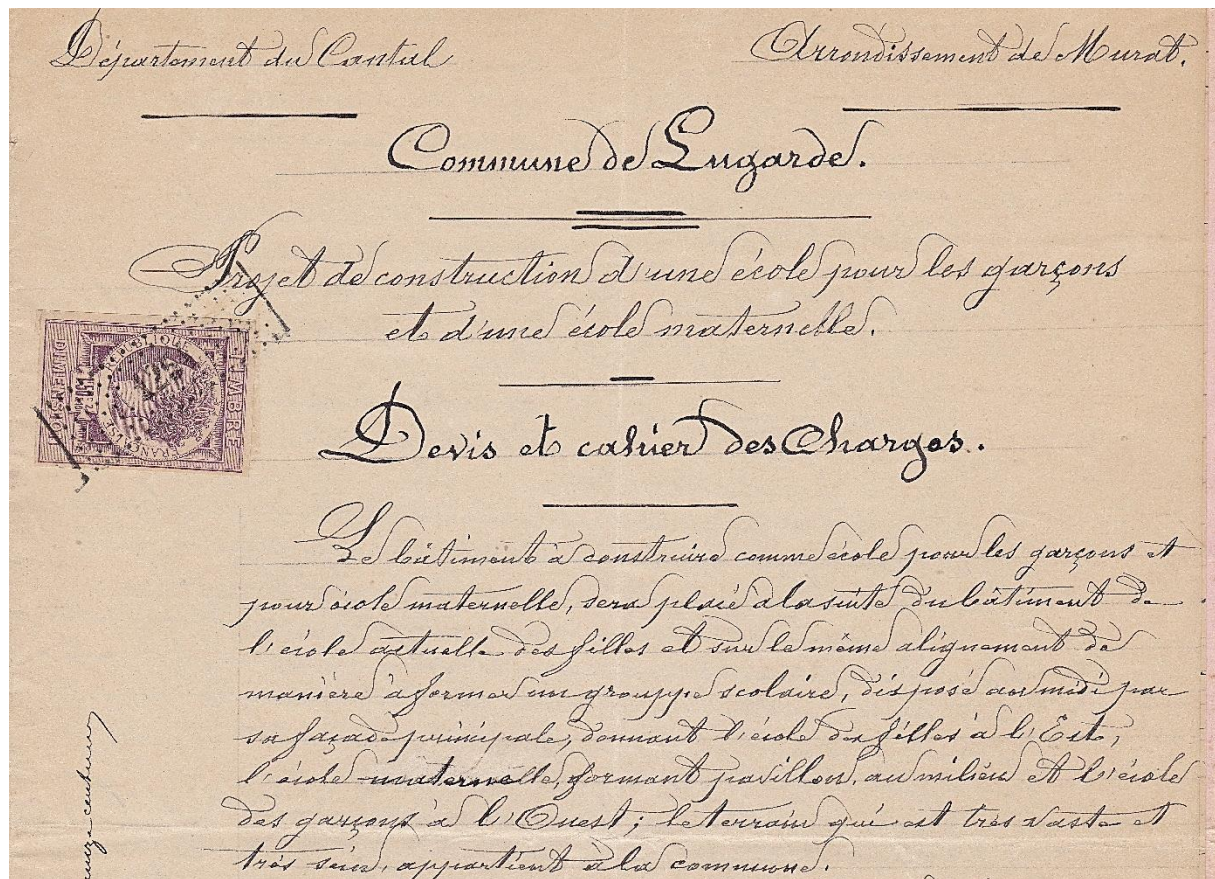 Département du Cantal
Arrondissement de Murat.
Commune de Lugarde.
Projet de construction d'une école pour les garçons
et d'une école maternelle.
TIMBRE
REPUBLIQUE
FRANÇAISE
DIMENSION
Devis et cahier des Charges.
Le bâtiment à construire comme école pour les garçons et
pour école maternelle, sera placé à la suite du bâtiment de
l'école actuelle des filles et sur le même alignement de
manière à former un grouppe scolaire, disposé au midi par
sa façade principale, donnant l'école des filles à l'Est,
l'école maternelle, formant pavillon, au milieu et l'école
des garçons à l'Ouest; le terrain qui est très vaste et
très sain, appartient à la commune.